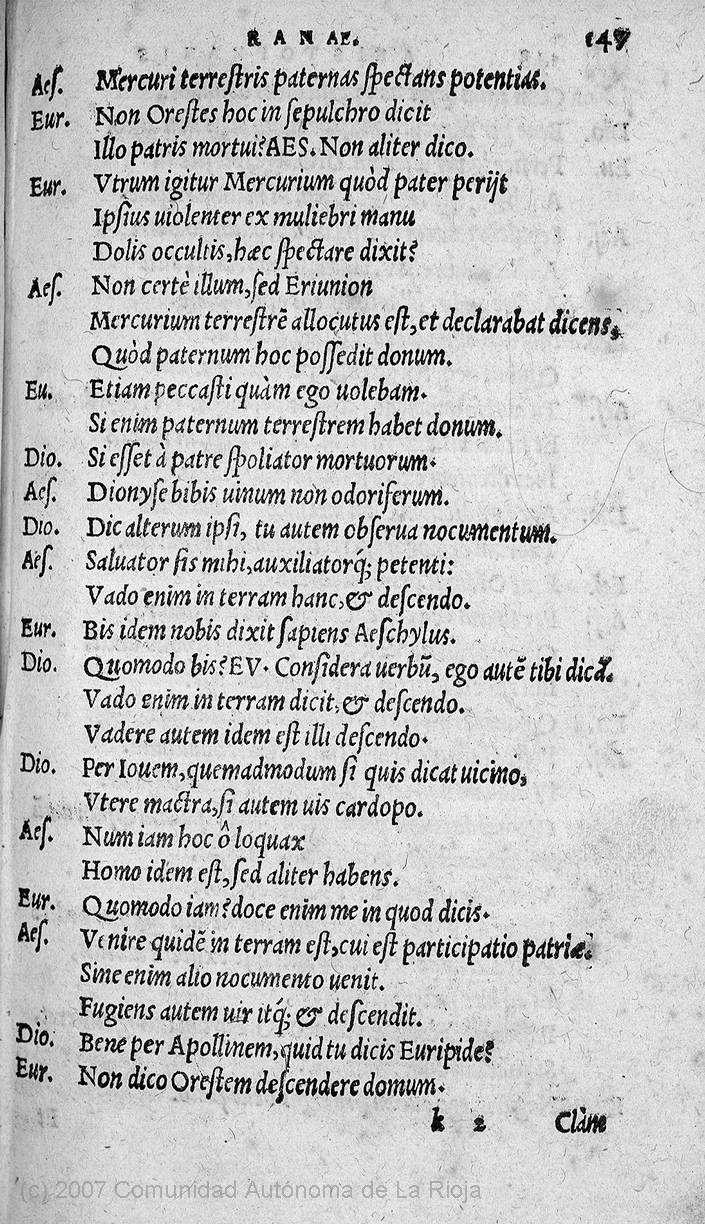 R A N AE. 147
Aeſ. Mercuri terreſtris paternas ſpectans potentias.
Eur. Non Oreſtes hoc in ſepulchro dicit
Illo patris mortui? AES. Non aliter dico.
Eur. Vtrum igitur Mercurium quòd pater perijt
Ipſius uiolenter ex muliebri manu
Dolis occultis, hæc ſpectare dixit?
Aeſ. Non certè illum, ſed Eriunion
Mercurium terreſtrẽ allocutus eſt, et declarabat dicens,
Quòd paternum hoc poſſedit donum.
Eu. Etiam peccaſti quàm ego uolebam.
Si enim paternum terreſtrem habet donum.
Dio. Si eſſet à patre ſpoliator mortuorum.
Aeſ. Dionyſe bibis uinum non odoriferum.
Dio. Dic alterum ipſi, tu autem obſerua nocumentum.
Aeſ. Saluator ſis mihi, auxiliatorq́; petenti:
Vado enim in terram hanc, & deſcendo.
Eur. Bis idem nobis dixit ſapiens Aeſchylus.
Dio. Quomodo bis? EV. Conſidera uerbũ, ego autẽ tibi dicã.
Vado enim in terram dicit, & deſcendo.
Vadere autem idem eſt illi deſcendo.
Dio. Per Iouem, quemadmodum ſi quis dicat uicino,
Vtere mactra, ſi autem uis cardopo.
Aeſ. Num iam hoc ô loquax
Homo idem eſt, ſed aliter habens.
Eur. Quomodo iam? doce enim me in quod dicis.
Aeſ. Venire quidẽ in terram eſt, cui eſt participatio patriæ.
Sine enim alio nocumento uenit.
Fugiens autem uir itq́; & deſcendit.
Dio. Bene per Apollinem, quid tu dicis Euripide?
Eur. Non dico Oreſtem deſcendere domum.
k 2 Clàne
(c) 2007 Comunidad Autónoma de La Rioja